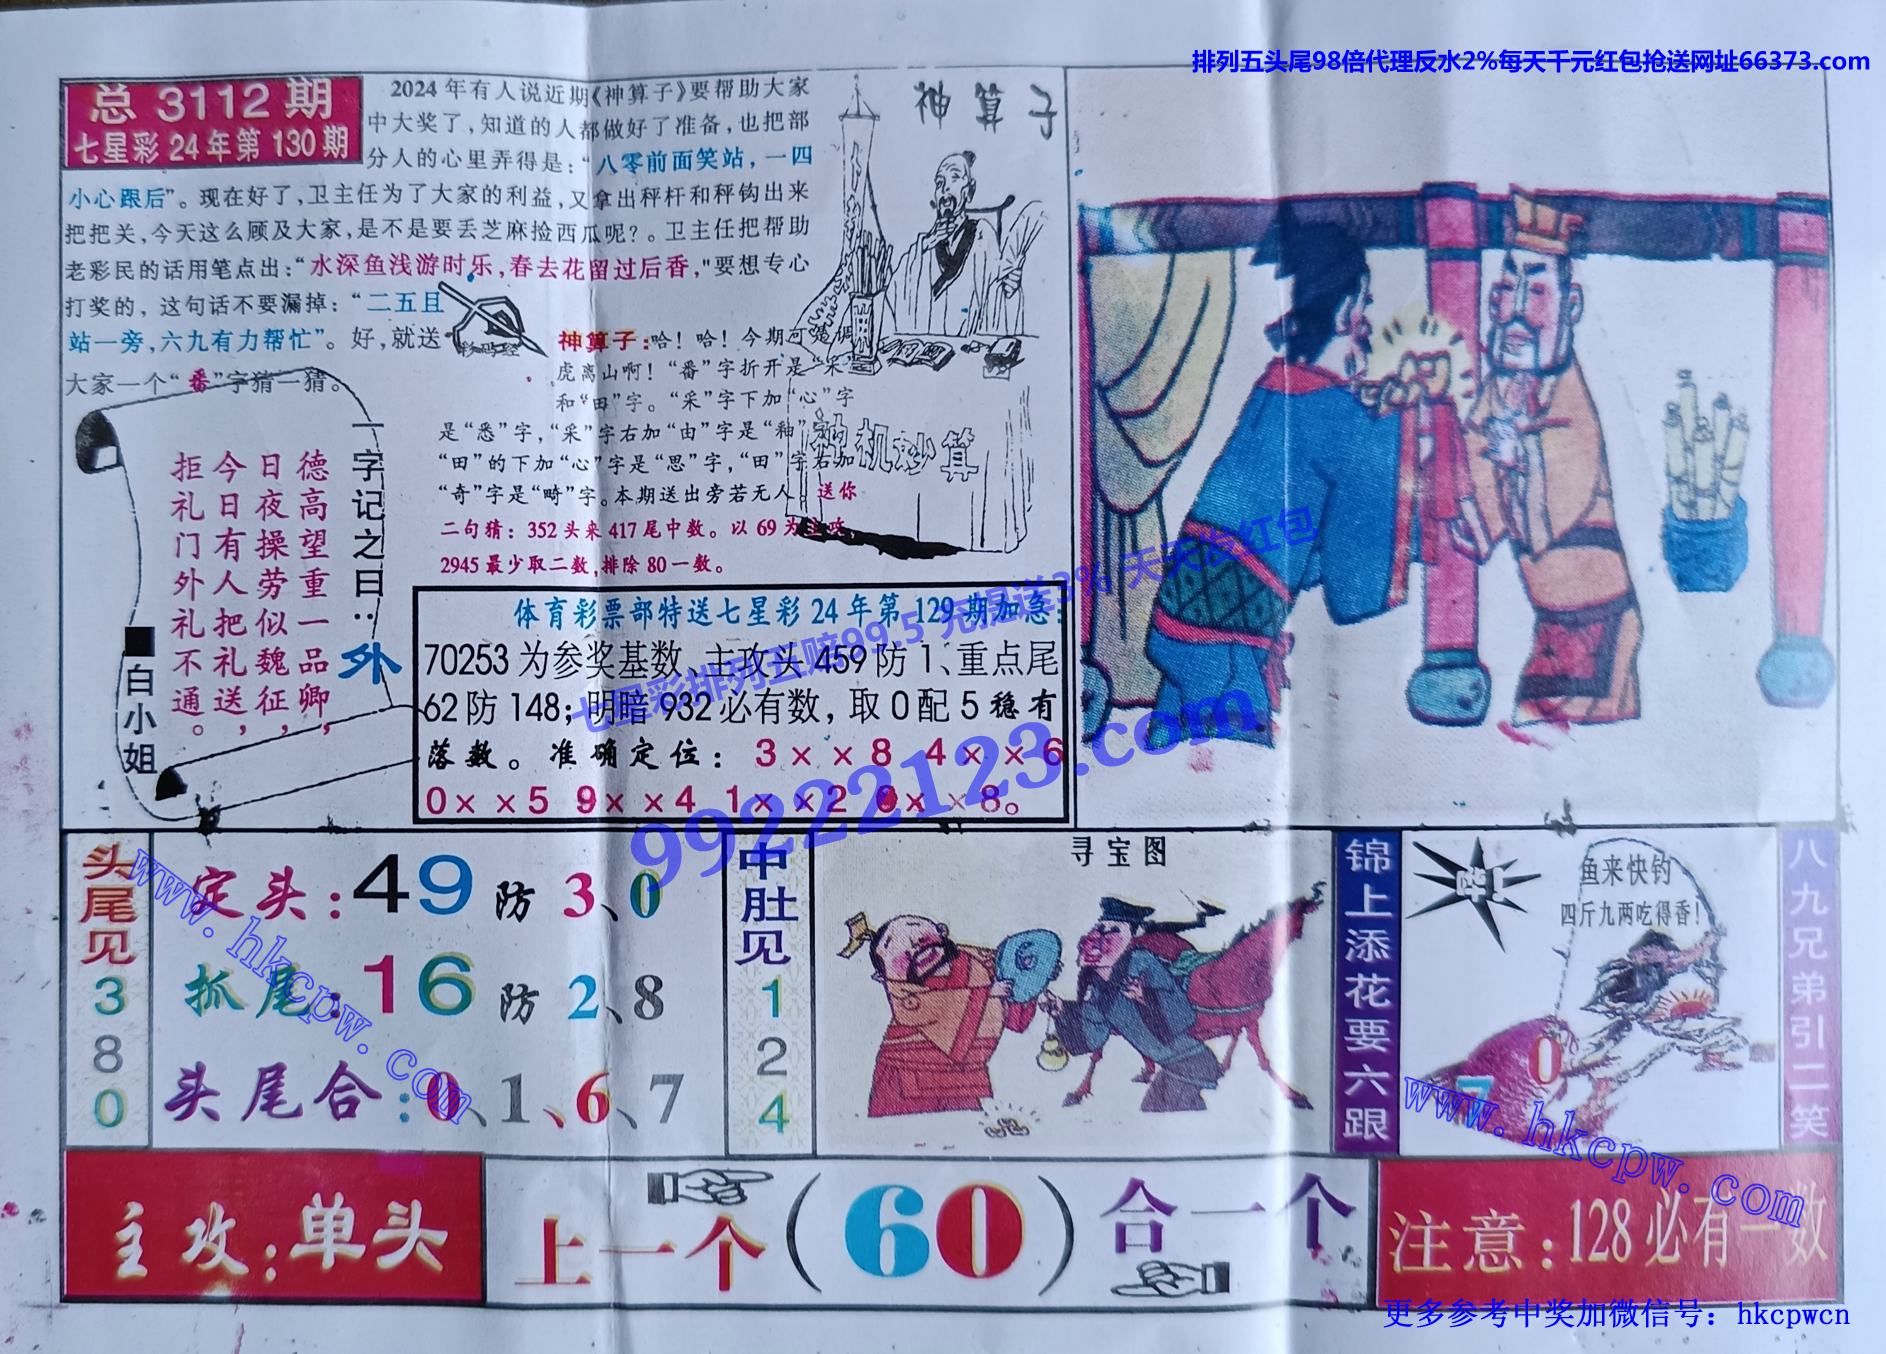 排列五头尾98倍代理反水2%每天千元红包抢送网址66373.com
总 3112 期
七星彩 24 年第 130 期
2024 年有人说近期《神算子》要帮助大家
中大奖了，知道的人都做好了准备，也把部
分人的心里弄得是：“八零前面笑站，一四
小心跟后”。现在好了，卫主任为了大家的利益，又拿出秤杆和秤钩出来
把把关，今天这么顾及大家，是不是要丢芝麻捡西瓜呢？。卫主任把帮助
老彩民的话用笔点出：“水深鱼浅游时乐，春去花留过后香，"要想专心
打奖的，这句话不要漏掉：“二五且
站一旁，六九有力帮忙”。好，就送
大家一个“番”字猜一猜。
彩码经
神算子
神机妙算
神算子：哈！哈！今期可是调
虎离山啊！“番”字折开是“采”
和“田”字。“采”字下加“心”字
是“悉”字，“采”字右加“由”字是“釉”字
“田”的下加“心”字是“思”字，“田”字右加
“奇”字是“畸”字。本期送出旁若无人 送你
二句猜：352 头来 417 尾中数。以 69 为主攻
2945 最少取二数，排除 80 一数。
一字记之曰：外
德高望重一品卿，
日夜操劳似魏征，
今日有人把礼送，
拒礼门外礼不通。
白小姐
体育彩票部特送七星彩 24 年第 129 期加急：
70253 为参奖基数、主攻头 459 防 1、重点尾
62 防 148；明暗 932 必有数，取 0 配 5 稳有
落数。准确定位：3××8 4××6
0××5 9××4 1××2 ××8。
七星彩排列五赔99.5 充是送3% 天天发红包
99222123.com
头尾见 3 8 0
定头：49 防 3、0
抓尾：16 防 2、8
头尾合：0、1、6、7
www.hkcpw.com
中肚见 1 2 4
寻宝图
锦上添花要六跟
鱼来快钓
四斤九两吃得香！
7 0
www.hkcpw.com
八九兄弟引二笑
主攻：单头
上一个（60）合一个
注意：128 必有一数
更多参考中奖加微信号：hkcpwcn